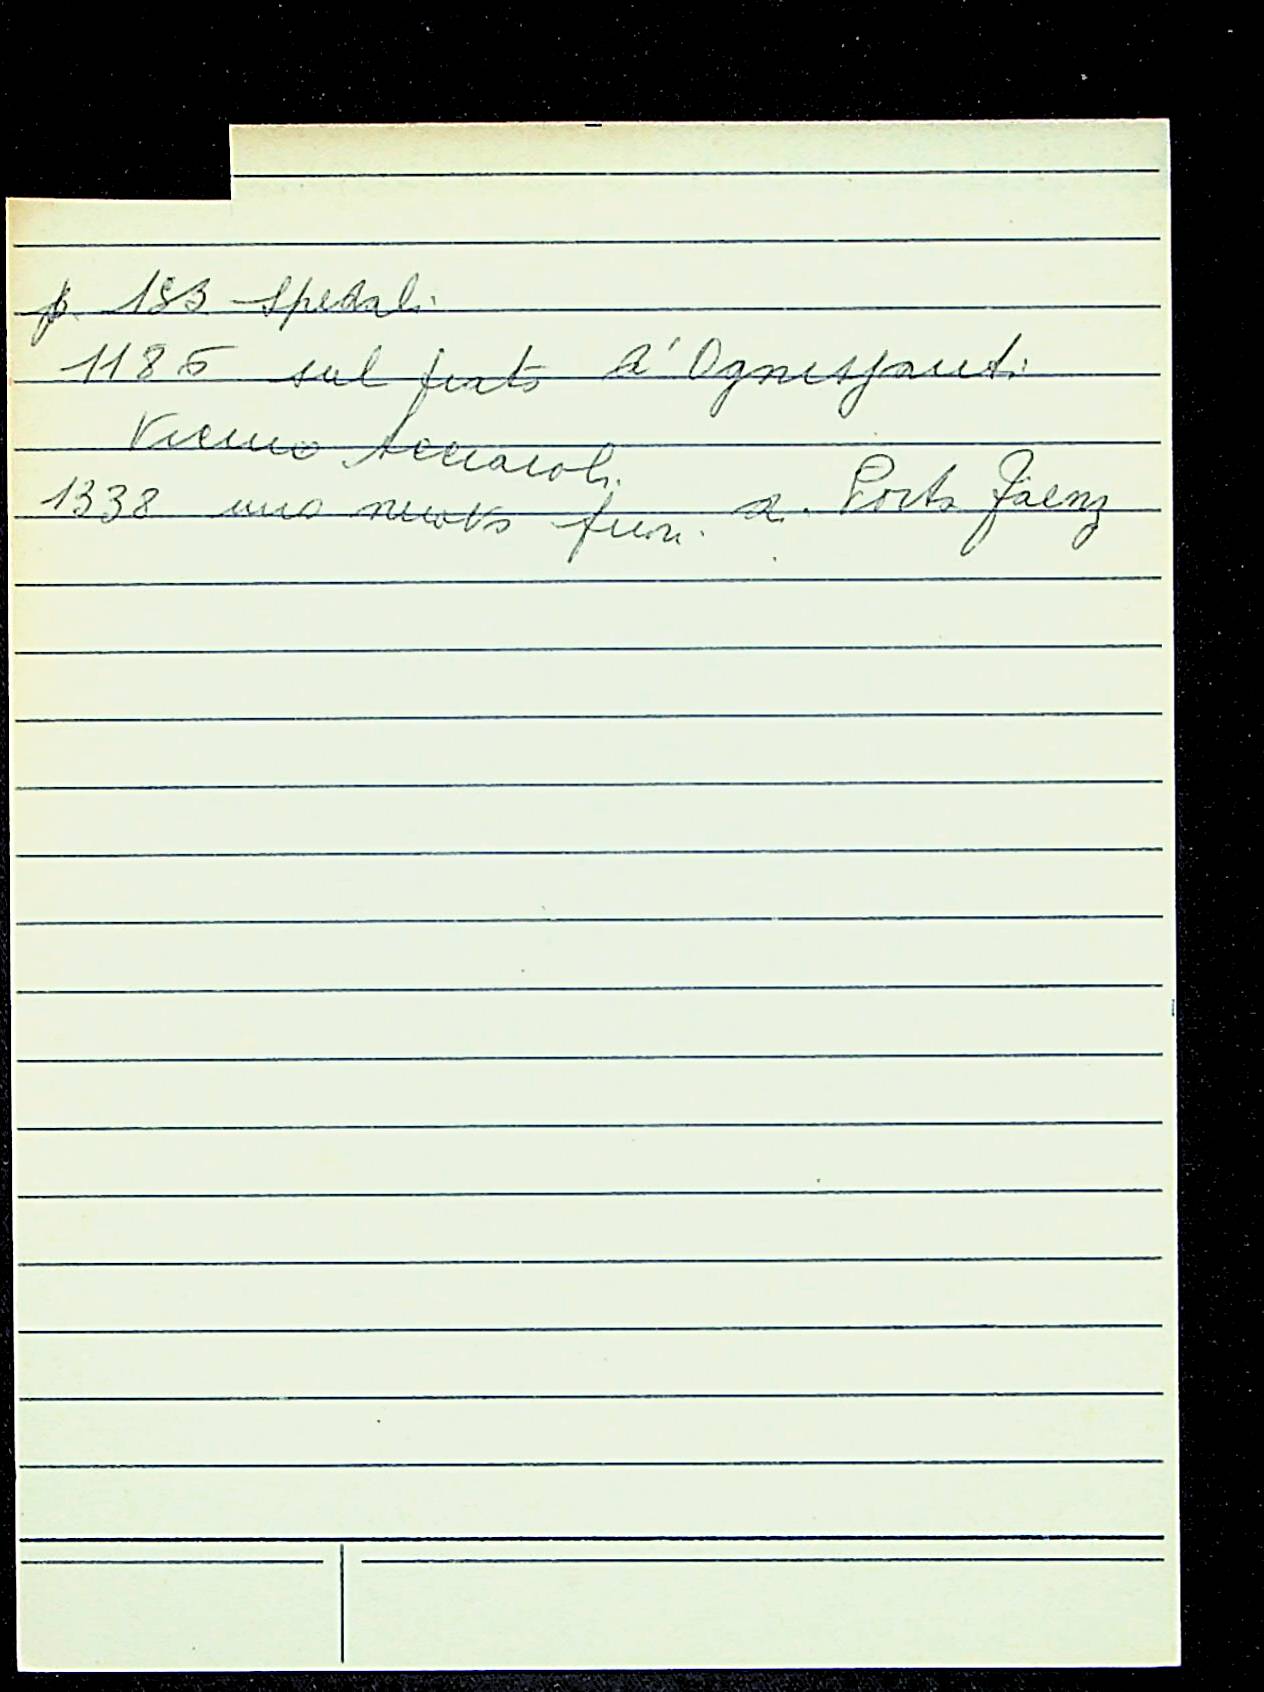 p. 183 Spedali
1185 sul prato d'Ognissanti
Vicino Acciaioli
1338 uno nuovo fuori a Porta Faenz